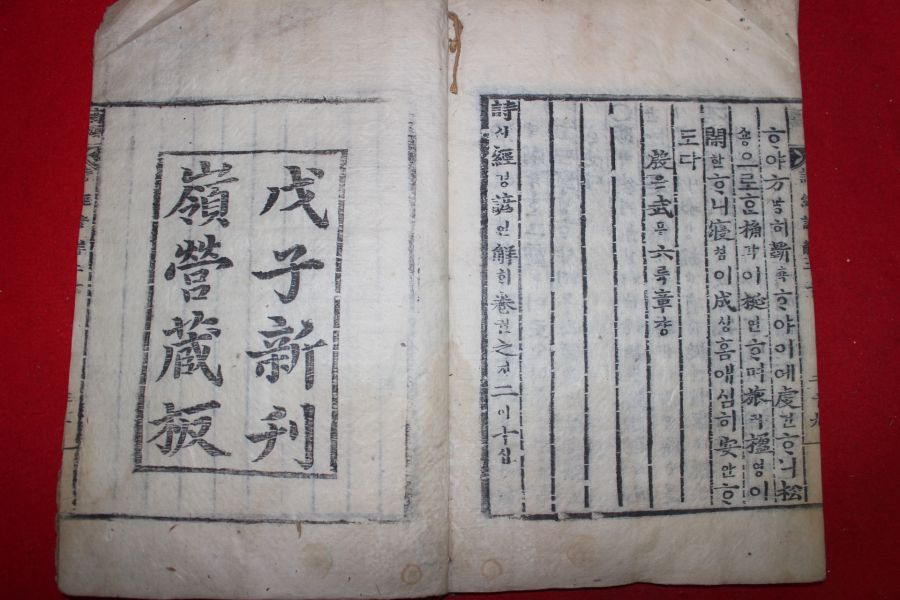 ᄒᆞ야方방히斲착ᄒᆞ야이에虔건ᄒᆞ니松
숑으로ᄒᆞᆫ桷각이梴연ᄒᆞ며旅려楹영이
閑한ᄒᆞ니寢침이成셩홈애심히安안ᄒᆞ
도다
殷은武무六륙章쟝
詩시經경諺언解ᄒᆡ卷권之지二이十십
戊子新刊
嶺營藏板